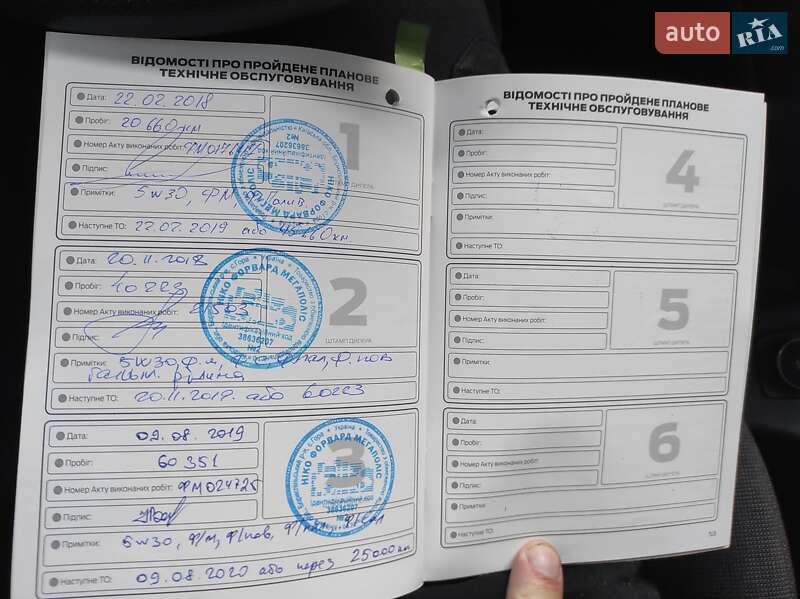 auto RIA.com
ВІДОМОСТІ ПРО ПРОЙДЕНЕ ПЛАНОВЕ
ТЕХНІЧНЕ ОБСЛУГОВУВАННЯ
Дата: 22.02.2018
1
Пробіг: 20 660 км
Номер Акту виконаних робіт:
Підпис:
Примітки: 5W30,
Наступне ТО: 22.02.2019 або
Дата: 20.11.2018
2
Пробіг:
ШТАМП ДИЛЕРА
Номер Акту виконаних робіт:
Підпис:
Примітки: 5W30,
Наступне ТО: 20.11.2019 або 60223
НІКО ФОРВАРД МЕГАПОЛІС
Україна
ідентифікаційний код
38636207
№2
Дата: 09.08.2019
3
Пробіг: 60 351
Номер Акту виконаних робіт: ФМ024725
Підпис:
Примітки: 5W30, Ф/м, Ф/пов,
Наступне ТО: 09.08.2020 або через 25000 км
НІКО ФОРВАРД МЕГАПОЛІС
Україна
38636207
№2
ВІДОМОСТІ ПРО ПРОЙДЕНЕ ПЛАНОВЕ
ТЕХНІЧНЕ ОБСЛУГОВУВАННЯ
Дата:
4
Пробіг:
Номер Акту виконаних робіт:
Підпис:
ШТАМП ДИЛЕРА
Примітки:
Наступне ТО:
Дата:
5
Пробіг:
Номер Акту виконаних робіт:
Підпис:
ШТАМП ДИЛЕРА
Примітки:
Наступне ТО:
Дата:
6
Пробіг:
Номер Акту виконаних робіт:
Підпис:
ШТАМП ДИЛЕРА
Примітки:
Наступне ТО: